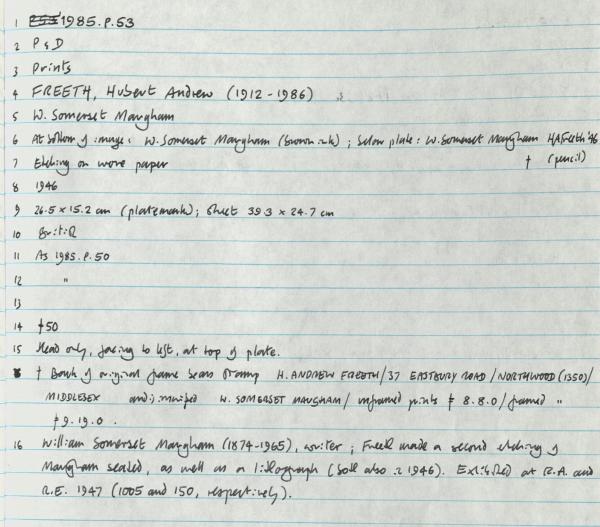 1 1985.P.53
2 P & D
3 Prints
4 FREETH, Hubert Andrew (1912-1986)
5 W. Somerset Maugham
6 At bottom of image: W. Somerset Maugham (brown ink); below plate: W. Somerset Maugham HAFreeth '46
7 Etching on wove paper † (pencil)
8 1946
9 26.5 x 15.2 cm (platemark); sheet 39.3 x 24.7 cm
10 British
11 As 1985.P.50
12 "
13
14 £50
15 Head only, facing to left, at top of plate.
† Back of original frame bears stamp H. ANDREW FREETH/37 EASTBURY ROAD/NORTHWOOD (1350)/
MIDDLESEX and inscribed W. SOMERSET MAUGHAM/ unframed prints £ 8.8.0/framed "
£9.19.0.
16 William Somerset Maugham (1874-1965), writer; Freeth made a second etching of
Maugham seated, as well as a lithograph (both also in 1946). Exhibited at R.A. and
R.E. 1947 (1005 and 150, respectively).